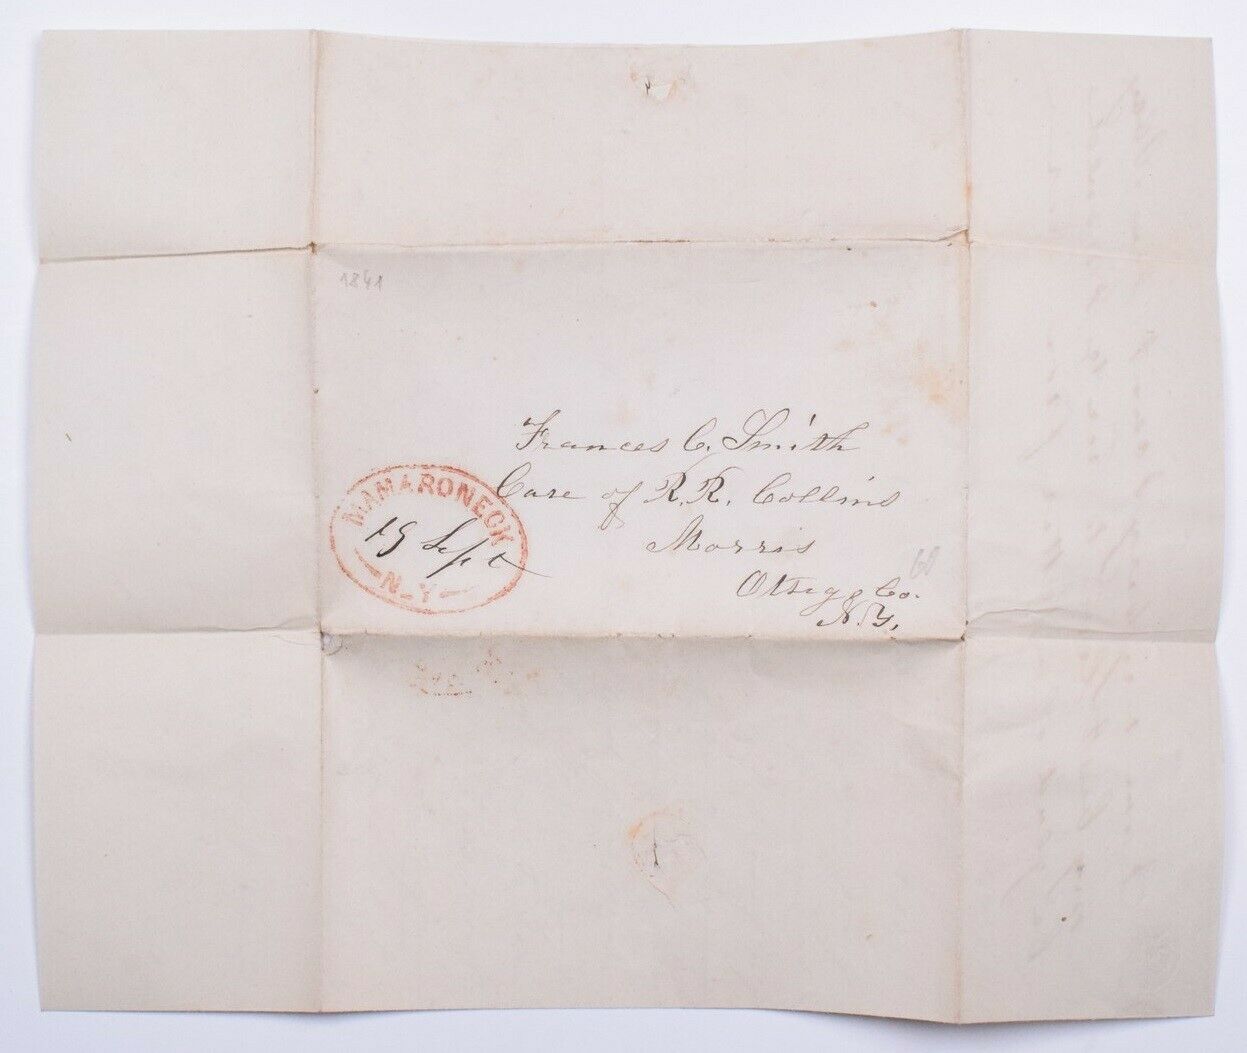 1841
Frances C. Smith
Care of R.R. Collins
Morris
Otsego Co.
N.Y.
60
MAMARONECK
19 Sept
N.Y